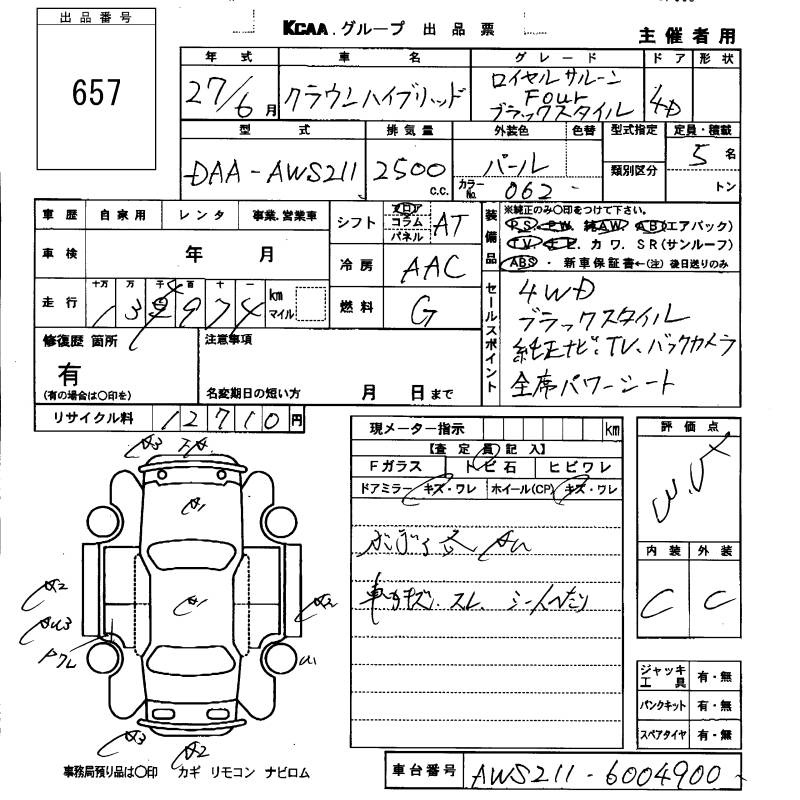 出品番号
657
KCAA.グループ 出品票
主催者用
年式 車名 グレード ドア 形状
27/6月 クラウンハイブリッド ロイヤルサルーン Four ブラックスタイル 4D
型式 排気量 外装色 色替 型式指定 定員・積載
DAA-AWS211 2500 c.c. パール カラーNo. 062 類別区分 5名 トン
車歴 自家用 レンタ 事業.営業車
車検 年 月
走行 十万 万 千 百 十 一 km マイル
シフト フロア コラム パネル AT
冷房 AAC
燃料 G
装備品
※純正のみ○印をつけて下さい。
PS. PW. 純AW. AB(エアバック)
TV. ナビ. カワ. SR(サンルーフ)
ABS・新車保証書←(注)後日送りのみ
セールスポイント
4WD
ブラックスタイル
純正ナビ、TV、バックカメラ
全席パワーシート
修復歴 箇所
有
(有の場合は○印を)
注意事項
名変期日の短い方 月 日まで
リサイクル料 12710円
現メーター指示 km
【査定員記入】
Fガラス トビ石 ヒビワレ
ドアミラー キズ・ワレ ホイール(CP) キズ・ワレ
評価点
内装 外装
C C
A3
A1
A1
A2
A2
A3
A2
ジャッキ工具 有・無
パンクキット 有・無
スペアタイヤ 有・無
事務局預り品は○印 カギ リモコン ナビロム
車台番号 AWS211-6004900